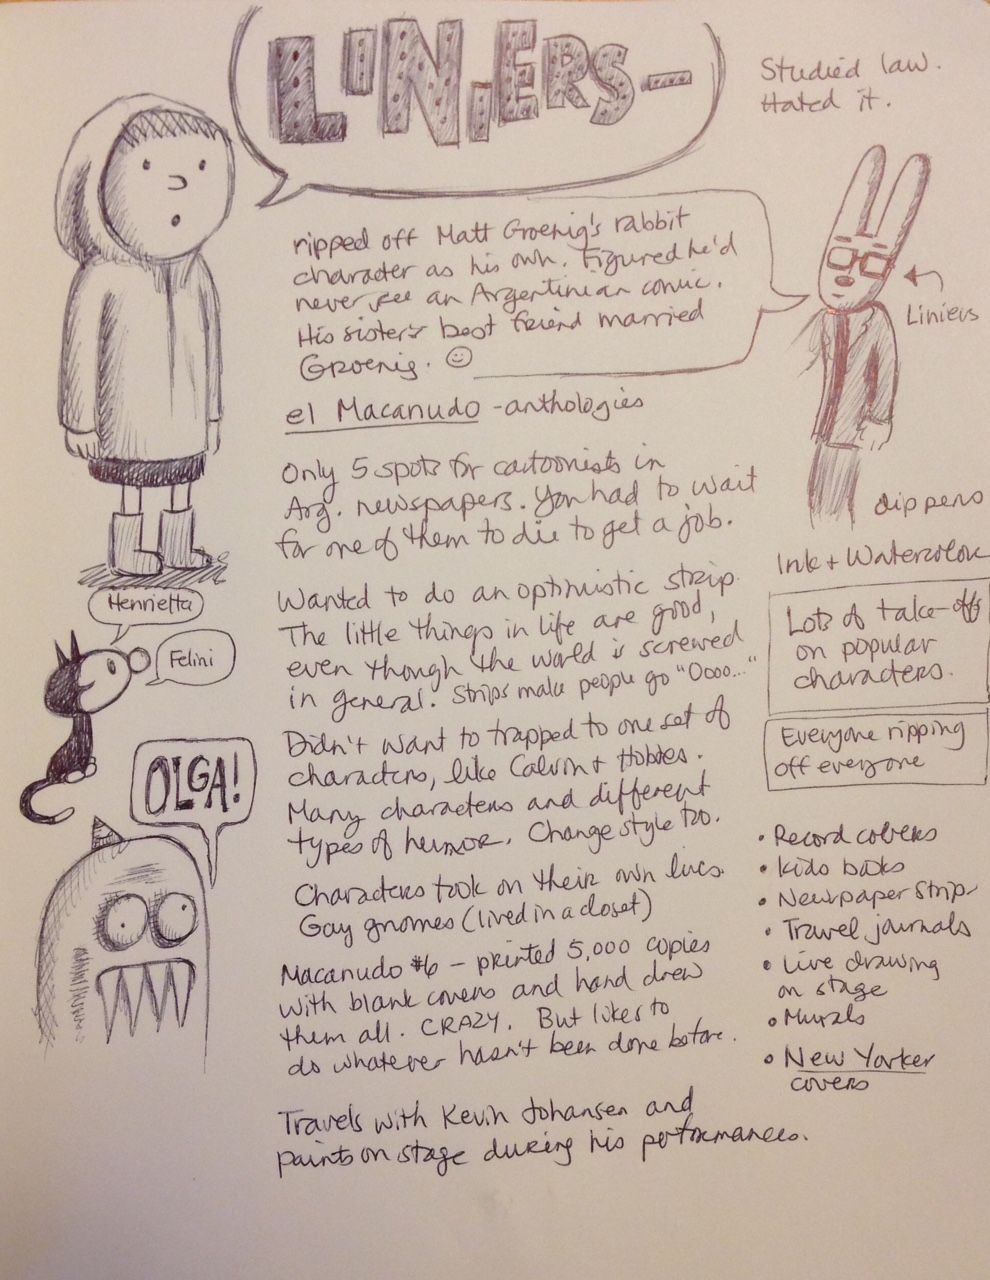 LINIERS-
Studied law.
Hated it.
ripped off Matt Groenig's rabbit
character as his own. Figured he'd
never see an Argentinian comic.
His sister's best friend married
Groenig. ☺
Liniers
el Macanudo - anthologies
Only 5 spots for cartoonists in
Arg. newspapers. You had to wait
for one of them to die to get a job.
Wanted to do an optimistic strip.
The little things in life are good,
even though the world is screwed
in general. Strips make people go "Oooo..."
Didn't want to trapped to one set of
characters, like Calvin + Hobbes.
Many characters and different
types of humor. Change style too.
Characters took on their own lives.
Gay gnomes (lived in a closet)
Macanudo #6 - printed 5,000 copies
with blank covers and hand drew
them all. CRAZY. But likes to
do whatever hasn't been done before.
Travels with Kevin Johansen and
paints on stage during his performances.
Henrietta
Felini
OLGA!
dip pens
Ink + Watercolor
Lots of take-offs
on popular
characters.
Everyone ripping
off everyone
• Record covers
• kids books
• Newspaper strip
• Travel journals
• Live drawing
on stage
• Murals
• New Yorker
covers